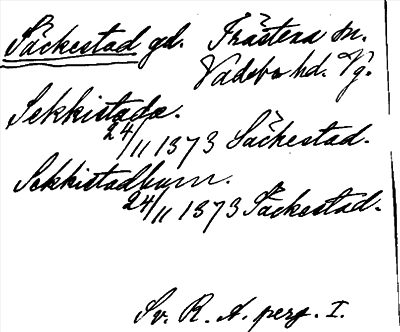 Säckestad gd. Frästena sn.
Vadsbo hd. Vg.
Sekkistada.
24/11 1373 Säckestad.
Sekkistadhum.
24/11 1373 Säckestad.
Sv. R. A. perg. I.